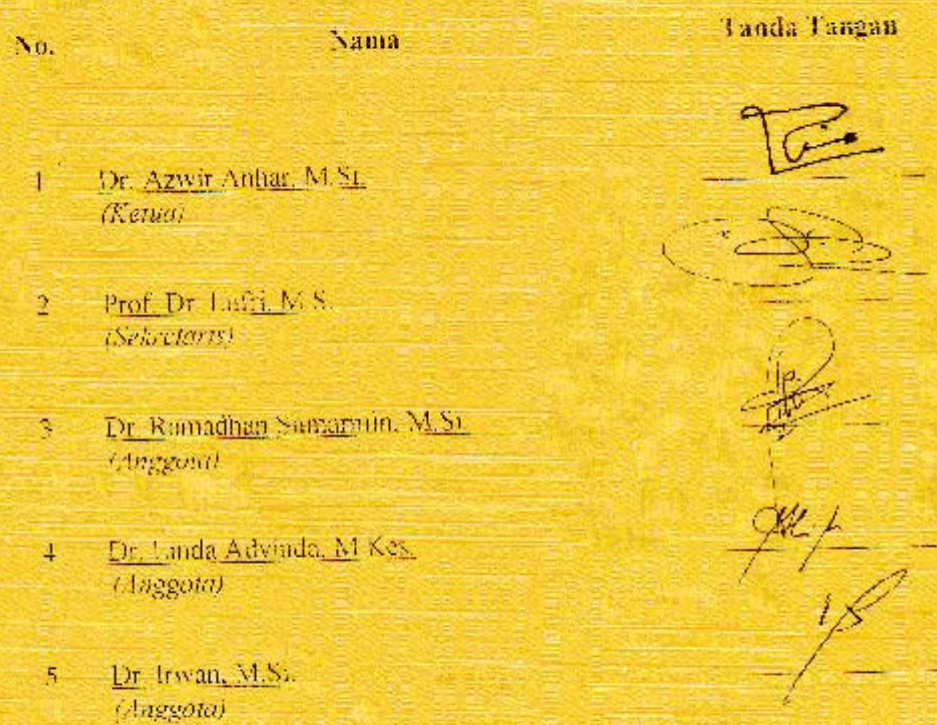 No. Nama Tanda Tangan
1 Dr. Azwir Anhar, M.Si.
(Ketua)
2 Prof. Dr. Lufri, M.S.
(Sekretaris)
3 Dr. Ramadhan Sumarmin, M.Si.
(Anggota)
4 Dr. Linda Advinda, M.Kes.
(Anggota)
5 Dr. Irwan, M.Si.
(Anggota)